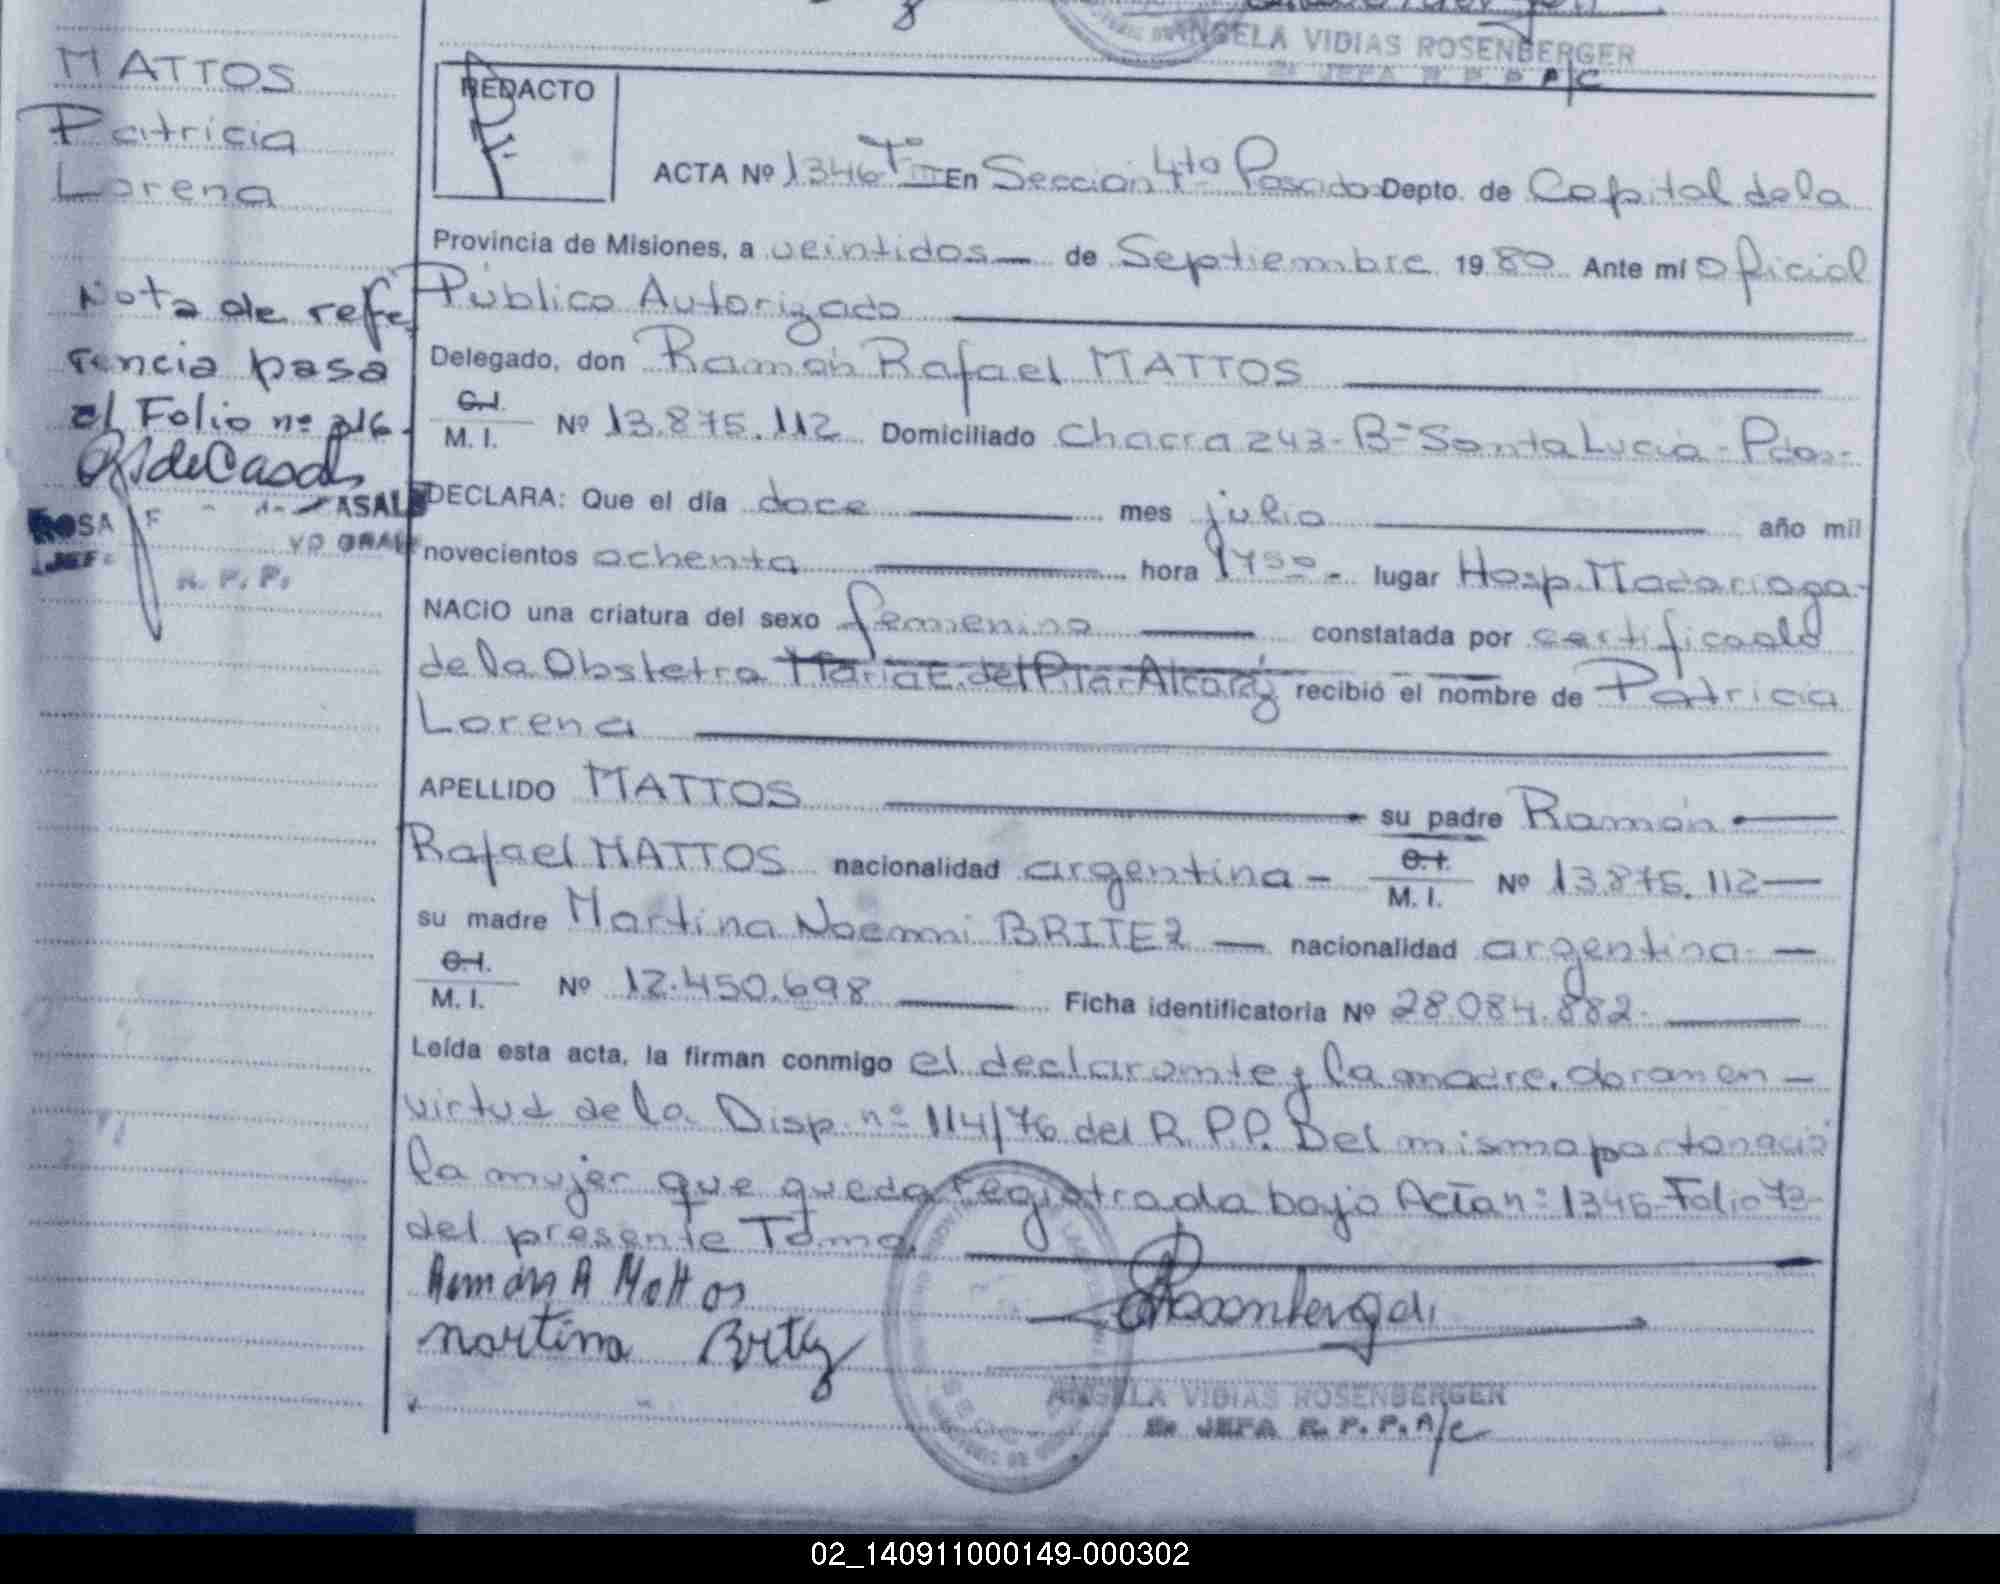 ANGELA VIDIAS ROSENBERGER
2a JEFA R. P. P. A/C
MATTOS
Patricia
Lorena
Nota de refe
rencia pasa
al Folio nº 216.
ROSA F
ASAL
JEF
R. P. P.
REDACTO
ACTA Nº 1346 Tº III En Sección 4to Posadas Depto. de Capital de la
Provincia de Misiones, a veintidos de Septiembre 1980 Ante mí Oficial
Público Autorizado
Delegado, don Ramón Rafael MATTOS
C.I.
M. I. Nº 13.875.112 Domiciliado Chacra 243-Bº Santa Lucia-Pdas-
DECLARA: Que el día doce mes julio año mil
novecientos ochenta hora 1730 - lugar Hosp. Madariaga-
NACIO una criatura del sexo femenino constatada por certificado
de la Obstetra Maria E. del Pilar Alcaráz recibió el nombre de Patricia
Lorena
APELLIDO MATTOS su padre Ramón
Rafael MATTOS nacionalidad argentina - C.I.
M. I. Nº 13.875.112
su madre Martina Noemi BRITEZ nacionalidad argentina
C.I.
M. I. Nº 12.450.698 Ficha identificatoria Nº 28.084.882.
Leída esta acta, la firman conmigo el declarante y la madre. obran en
virtud de la Disp. nº 114/76 del R. P.P. Del mismo parto nació
la mujer que queda registrada bajo Acta nº 1345-Folio 73-
del presente Tomo.
Ramón R Mattos
Martina Britez
ANGELA VIDIAS ROSENBERGER
2a JEFA R. P. P. A/C
02_140911000149-000302